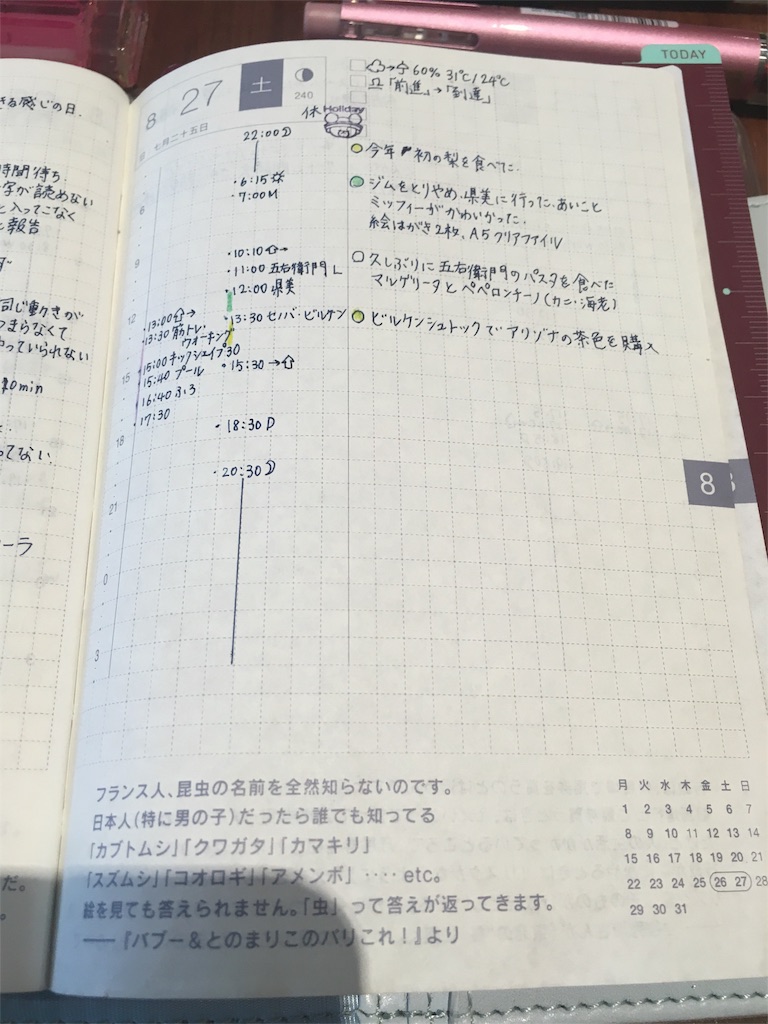 きる感じの日.
時間待ち.
字が読めない
と入ってこなく
と報告
同じ動きが
つまらなくて
やっていられない
min
ってない.
ーラ
だ。
TODAY
8 27 土
240
七月二十五日
休 Holiday
60% 31℃/24℃
「前進」→「到達」
22:00
・6:15
・7:00M
・10:10
・11:00 五右衛門 L
・12:00 県美
・13:30 セノバ・ビルケン
・15:30 →
・18:30 D
・20:30
・13:00 →
・13:30 筋トレ・
ウオーキング
・15:00 キックシェイプ30
・15:40 プール
・16:40 ふろ
・17:30
6
9
12
15
18
21
0
3
今年 初の梨を食べた.
ジムをとりやめ、県美に行った.あいこと
ミッフィーがかわいかった.
絵はがき2枚、A5クリアファイル
久しぶりに五右衛門のパスタを食べた
マルゲリータとペペロンチーノ(カニ・海老)
ビルケンシュトックでアリゾナの茶色を購入
8
フランス人、昆虫の名前を全然知らないのです。
日本人(特に男の子)だったら誰でも知ってる
「カブトムシ」「クワガタ」「カマキリ」
「スズムシ」「コオロギ」「アメンボ」‥‥etc。
絵を見ても答えられません。「虫」って答えが返ってきます。
──『バブー&とのまりこのパリこれ!』より
月 火 水 木 金 土 日
1 2 3 4 5 6 7
8 9 10 11 12 13 14
15 16 17 18 19 20 21
22 23 24 25 26 27 28
29 30 31